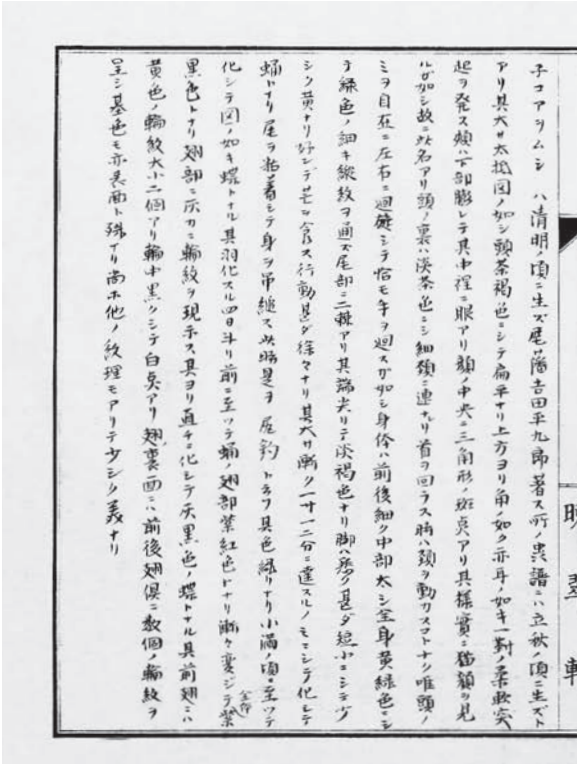 子コアヲムシ ハ清明ノ頃ニ生ズ尾藩吉田平九郎著ス所ノ虫譜ニハ立秋ノ頃ニ生ズト
アリ其大サ大抵図ノ如シ頭茶褐色ニシテ扁平ナリ上方ヨリ角ノ如ク亦耳ノ如キ一對ノ柔軟突
起ヲ発ス頬ハ下部膨レテ其中程ニ眼アリ顔ノ中央ニ三角形ノ斑点アリ其様實ニ猫顔ヲ見
ルガ如シ故ニ此名アリ頭ノ裏ハ淡茶色ニシ細頸ニ連ナリ首ヲ回ラス時ハ頸ヲ動カスコトナク唯頭ノ
ミヲ自在ニ左右ニ廻旋シテ恰モ午ヲ廻スガ如シ身体ハ前後細ク中部太シ全身黄緑色ニシ
テ緑色ノ細キ縦紋ヲ通ズ尾部ニ二棘アリ其端尖リテ淡褐色ナリ脚ハ痿ク甚ダ短小ニシテ少
シク黄ナリ好ンデ芒ヲ食ス行動甚ダ徐々ナリ其大サ漸ク一寸一二分ニ達スルノミニシテ化シテ
蛹トナリ尾ヲ粘着シテ身ヲ吊縋ス此時是ヲ 尾釣 トフ其色緑ナリ小満ノ頃ニ至ツテ
化シテ図ノ如キ蝶トナル其羽化スル四日斗リ前ニ至ツテ蛹ノ翅部紫紅色トナリ漸々変ジテ全部紫
黒色トナリ翅部ニ灰カニ輪紋ヲ現示ス其ヨリ直チニ化シテ灰黒色ノ蝶トナル其前翅ニハ
黄色ノ輪紋大小二個アリ輪中黒クシテ白点アリ翅裏面ニハ前後翅倶ニ数個ノ輪紋ヲ
呈シ基色モ亦表面ト殊ナリ尚ホ他ノ紋理モアリテ少シク美ナリ